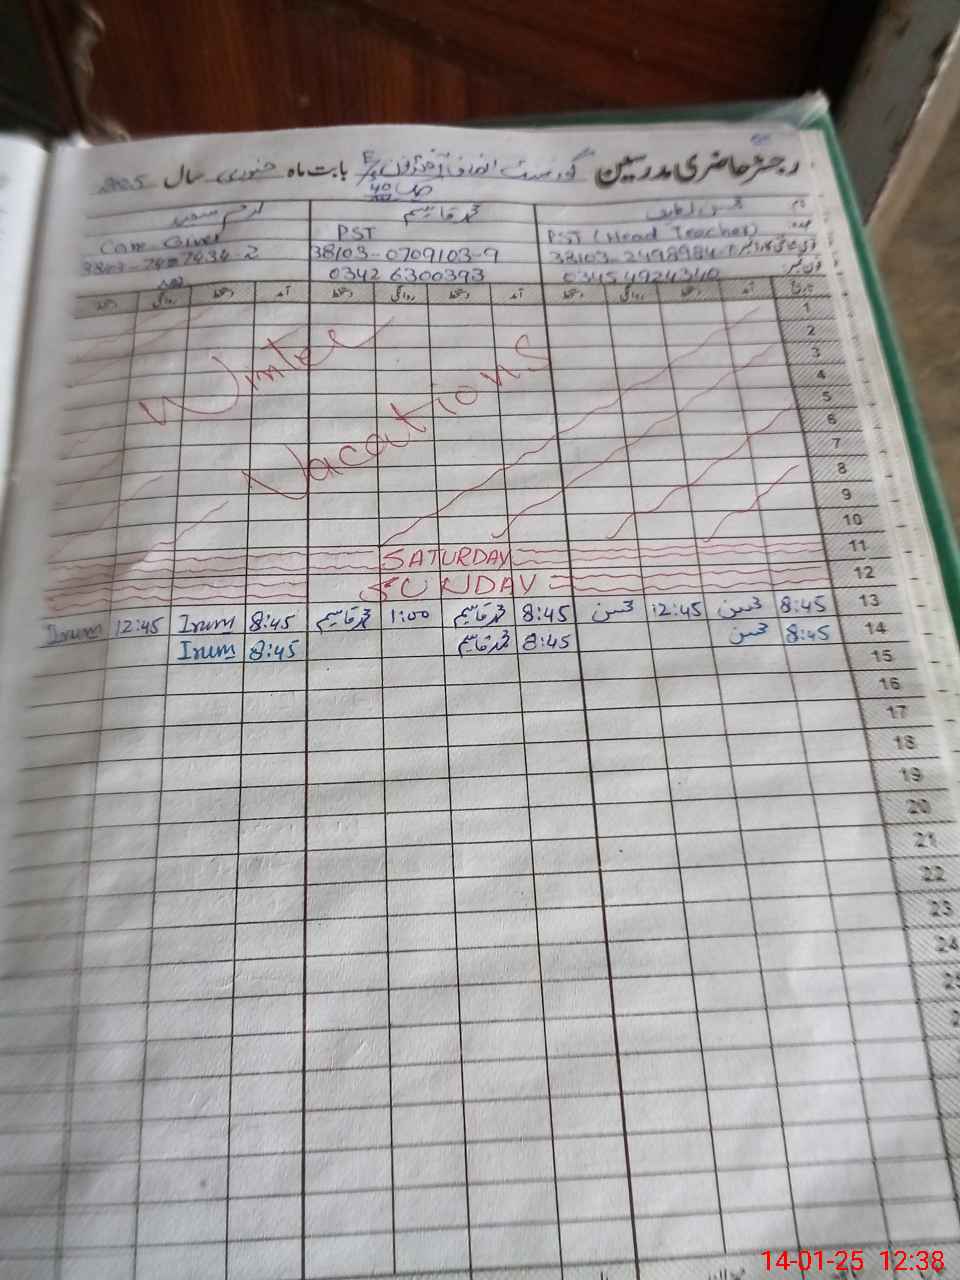 رجسٹر حاضری مدرسین گورنمنٹ بابت ماہ جنوری سال 2025
40
نام محسن لطیف محمد قاسم ارم
عہدہ PST (Head Teacher) PST Care Giver
38103-2498984- 38103-0709103-9
فون نمبر 03454924340 0342 6300393
تاریخ آمد دستخط روانگی دستخط آمد دستخط روانگی دستخط آمد دستخط روانگی دستخط
1
2
3
4
5
6
7
8
9
10
Winter
Vacations
11 SATURDAY
12 SUNDAY
13 8:45 محسن 12:45 محسن 8:45 محمد قاسم 1:00 محمد قاسم 8:45 Irum 12:45 Irum
14 8:45 محسن 8:45 محمد قاسم 8:45 Irum
15
16
17
18
19
20
21
22
23
24
14-01-25 12:38